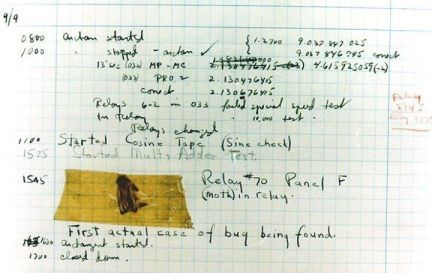 9/9
0800 Antan started
1000 " stopped - antan ✓ { 1.2700 9.037 847 025
9.037 846 995 correct
13"uc (032) MP-MC 2.130476415 4.615925059(-2)
(033) PRO 2 2.130476415
correct 2.130676415
Relays 6-2 in 033 failed special speed test
in Relay " 10,000 test.
Relays changed
Relay
2145
Relay 3370
1100 Started Cosine Tape (Sine check)
1525 Started Multi Adder Test.
1545 Relay #70 Panel F
(moth) in relay.
First actual case of bug being found.
1630 antangent started.
1700 closed down.